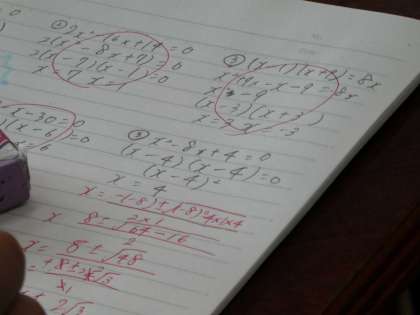 ② 2x² - 16x + 14 = 0
2(x² - 8x + 7) = 0
2(x - 7)(x - 1) = 0
x = 7 x = 1
③ (x - 1)(x + 9) = 8x
x² + 8x - 9 = 8x
x² - 9
(x - 3)(x + 3)
x = 3 x = -3
x - 30 = 0
)(x - 6) = 0
= 6
⑤ x² - 8x + 4 = 0
(x - 4)(x - 4) = 0
(x - 4)²
x = 4
x = -(-8) ± √(-8)² - 4×1×4
2×1
x 8 ± √64 - 16
2
x = 8 ± √48
2√3